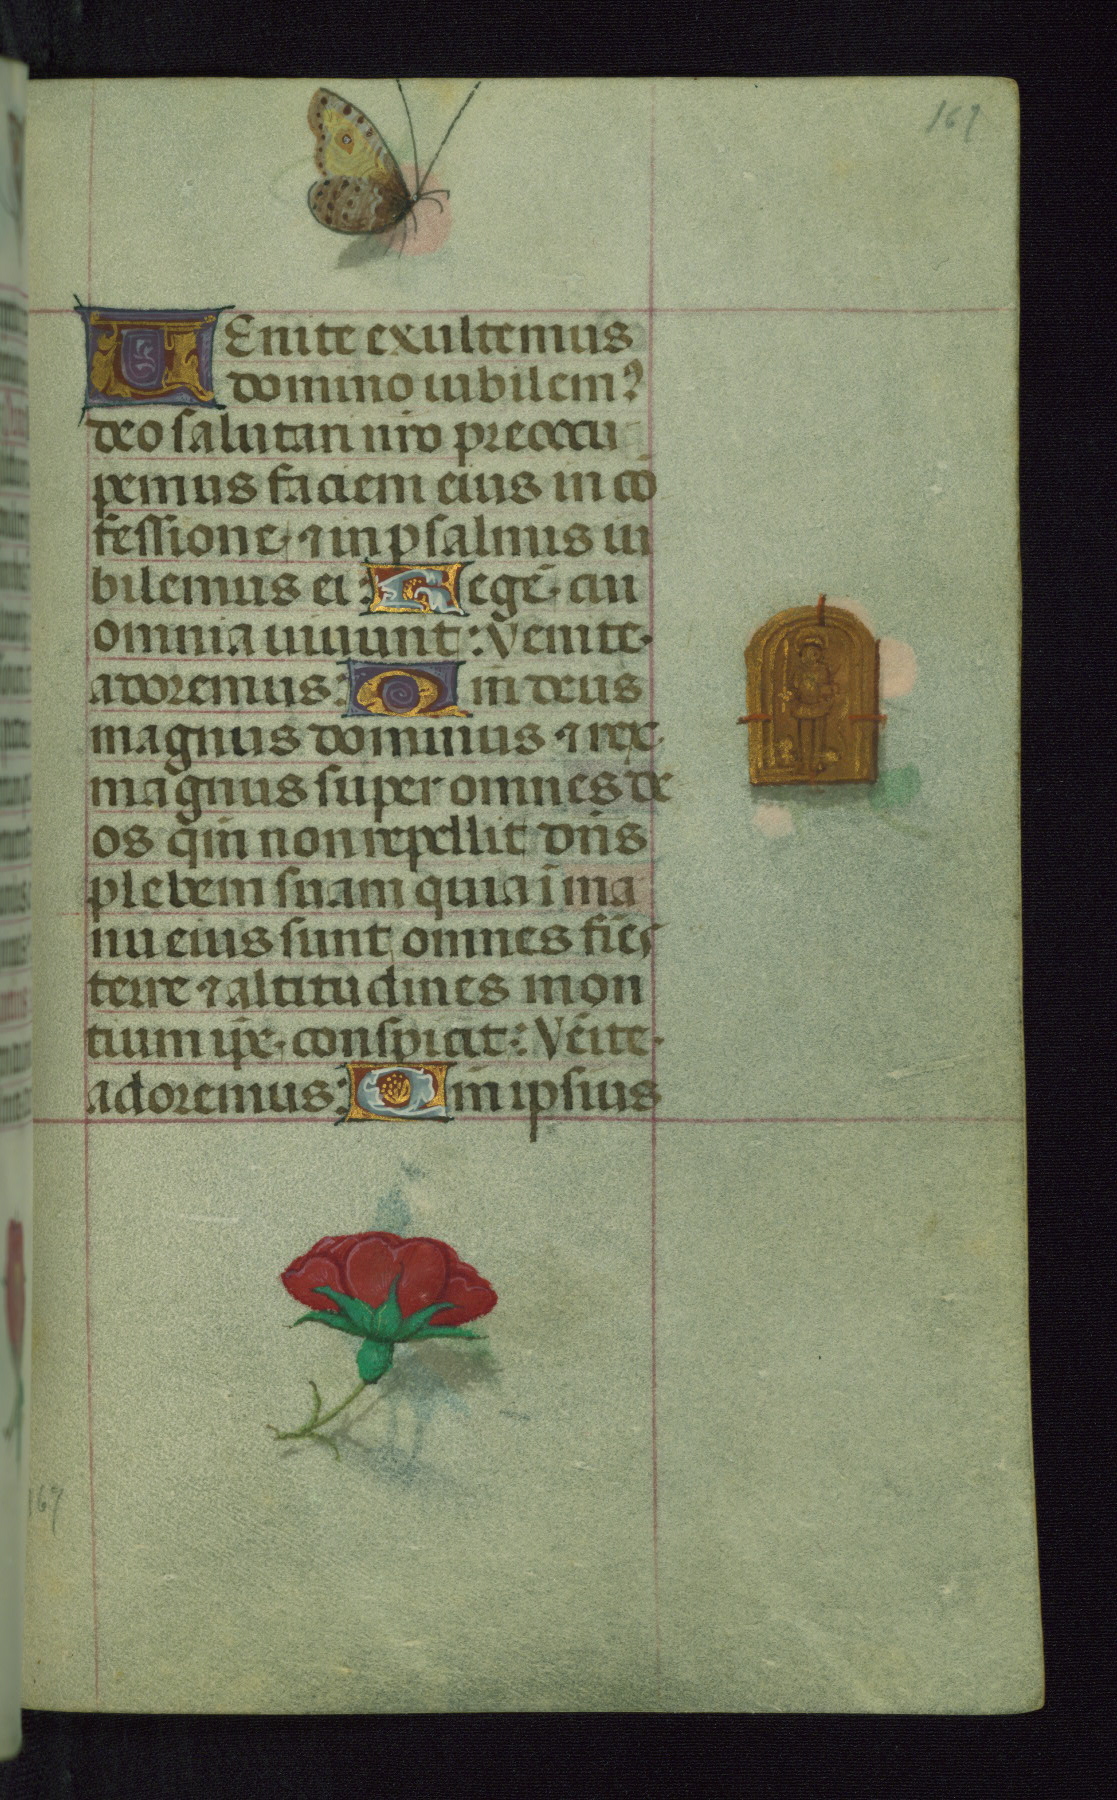 167
VEnite exultemus
domino iubilem⁹
deo salutari nr̄o preoccu
pemus faciem eius in cō
fessione· ⁊ in psalmus iu
bilemus ei : Regē· cui
omnia uiuunt : Venite·
adoremus : Qm̄ deus
magnus dominus ⁊ rex·
magnus super omnes de
os qm̄ non repellit dn̄s
plebem suam quia ī ma
nu eius sunt omnes fiēs
terre ⁊ altitudines mon
tium ip̄e· conspicit : Vēite·
adoremus : Qm̄ ipsius
167